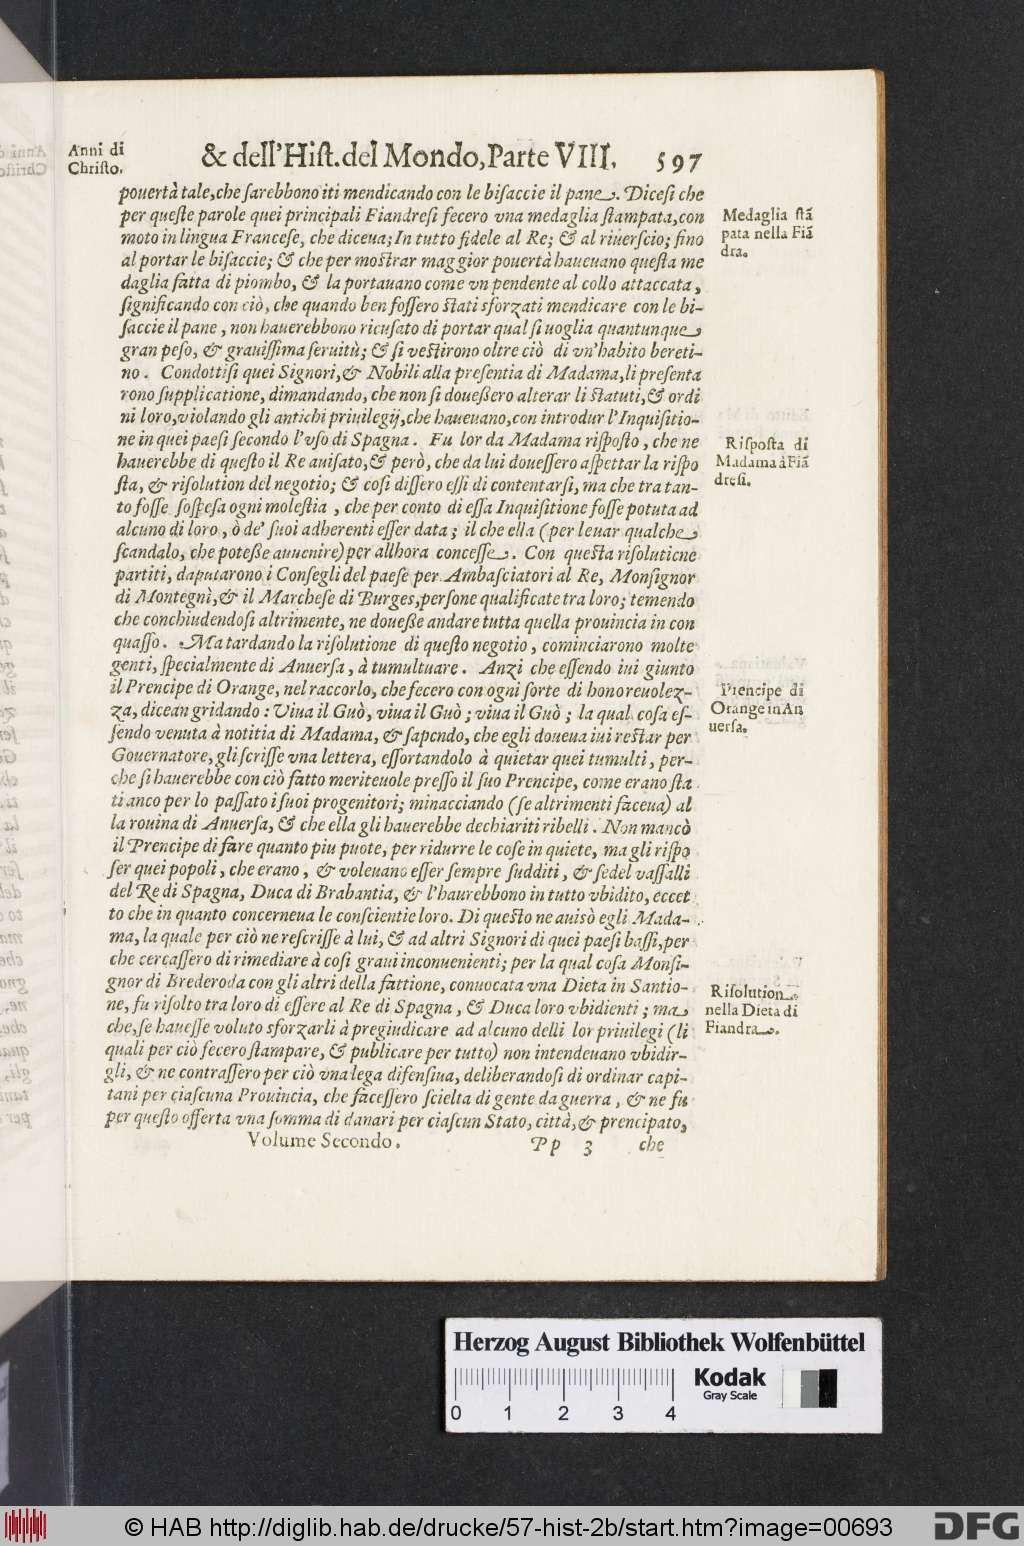 Anni di
Christo.
& dell'Hist. del Mondo, Parte VIII. 597
pouertà tale, che sarebbono iti mendicando con le bisaccie il pane. Dicesi che
per queste parole quei principali Fiandresi fecero vna medaglia stampata, con
moto in lingua Francese, che diceua; In tutto fidele al Re; & al riuerscio; fino
al portar le bisaccie; & che per mostrar maggior pouertà haueuano questa me
daglia fatta di piombo, & la portauano come vn pendente al collo attaccata,
significando con ciò, che quando ben fossero stati sforzati mendicare con le bi-
saccie il pane, non hauerebbono ricusato di portar qual si uoglia quantunque
gran peso, & grauissima seruitù; & si vestirono oltre ciò di vn'habito bereti-
no. Condottisi quei Signori, & Nobili alla presentia di Madama, li presenta
rono supplicatione, dimandando, che non si doueßero alterar li statuti, & ordi
ni loro, violando gli antichi priuilegij, che haueuano, con introdur l'Inquisitio-
ne in quei paesi secondo l'vso di Spagna. Fu lor da Madama risposto, che ne
hauerebbe di questo il Re auisato, & però, che da lui douessero aspettar la rispo
sta, & risolution del negotio; & cosi dissero essi di contentarsi, ma che tra tan-
to fosse sospesa ogni molestia, che per conto di essa Inquisitione fosse potuta ad
alcuno di loro, ò de' suoi adherenti esser data; il che ella (per leuar qualche
scandalo, che poteße auuenire) per allhora concesse. Con questa risolutione
partiti, daputarono i Consegli del paese per Ambasciatori al Re, Monsignor
di Montegni, & il Marchese di Burges, persone qualificate tra loro; temendo
che conchiudendosi altrimente, ne doueße andare tutta quella prouincia in con
quasso. Ma tardando la risolutione di questo negotio, cominciarono molte
genti, specialmente di Anuersa, à tumultuare. Anzi che essendo iui giunto
il Prencipe di Orange, nel raccorlo, che fecero con ogni sorte di honoreuolez-
za, dicean gridando: Viua il Guò, viua il Guò; viua il Guò; la qual cosa es-
sendo venuta à notitia di Madama, & sapendo, che egli doueua iui restar per
Gouernatore, gli scrisse vna lettera, essortandolo à quietar quei tumulti, per-
che si hauerebbe con ciò fatto meriteuole presso il suo Prencipe, come erano sta
ti anco per lo passato i suoi progenitori; minacciando (se altrimenti faceua) al
la rouina di Anuersa, & che ella gli hauerebbe dechiariti ribelli. Non mancò
il Prencipe di fare quanto piu puote, per ridurre le cose in quiete, ma gli rispo
ser quei popoli, che erano, & voleuano esser sempre sudditi, & fedel vassalli
del Re di Spagna, Duca di Brabantia, & l'haurebbono in tutto vbidito, eccet
to che in quanto concerneua le conscientie loro. Di questo ne auisò egli Mada-
ma, la quale per ciò ne rescrisse à lui, & ad altri Signori di quei paesi bassi, per
che cercassero di rimediare à cosi graui inconuenienti; per la qual cosa Monsi-
gnor di Brederoda con gli altri della fattione, conuocata vna Dieta in Santio-
ne, fu risolto tra loro di essere al Re di Spagna, & Duca loro vbidienti; ma
che, se hauesse voluto sforzarli à pregiudicare ad alcuno delli lor priuilegi (li
quali per ciò fecero stampare, & publicare per tutto) non intendeuano vbidir-
gli, & ne contrassero per ciò vna lega difensiua, deliberandosi di ordinar capi-
tani per ciascuna Prouincia, che facessero scielta di gente da guerra, & ne fu
per questo offerta vna somma di danari per ciascun Stato, città, & prencipato,
Volume Secondo. Pp 3 che
Medaglia stã
pata nella Fiã
dra.
Risposta di
Madama à Fiã
dresi.
Prencipe di
Orange in An
uersa.
Risolution
nella Dieta di
Fiandra.
Herzog August Bibliothek Wolfenbüttel
Kodak
Gray Scale
0 1 2 3 4
© HAB http://diglib.hab.de/drucke/57-hist-2b/start.htm?image=00693
DFG